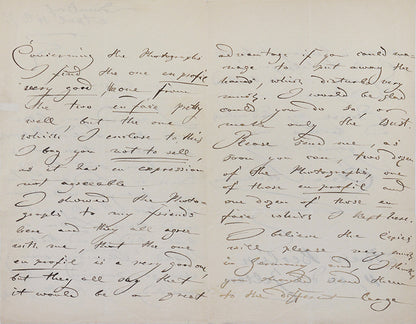 Concerning the Photographs
I find the one en profil
very good the one from
the two en face pretty
well, but the one
which I enclose to this
I beg you not to sell,
as it has an expression
not agreeable.
I showed the Photo-
graphs to my friends
here and they all agree
with me, that the one
en profil is a very good one
but they all say that
it would be a great
advantage if you could ma-
nage to put away the
hands, which disturbs very
much. I would be glad
could you do so, or
make only the Bust.
Please send me, as
soon you can, two dozen
of the Photographs, one
of those en profil and
one dozen of those en
face which I kept here.
I believe the Copies
will please very much
in Germany, and I think
you should send them
to the different large